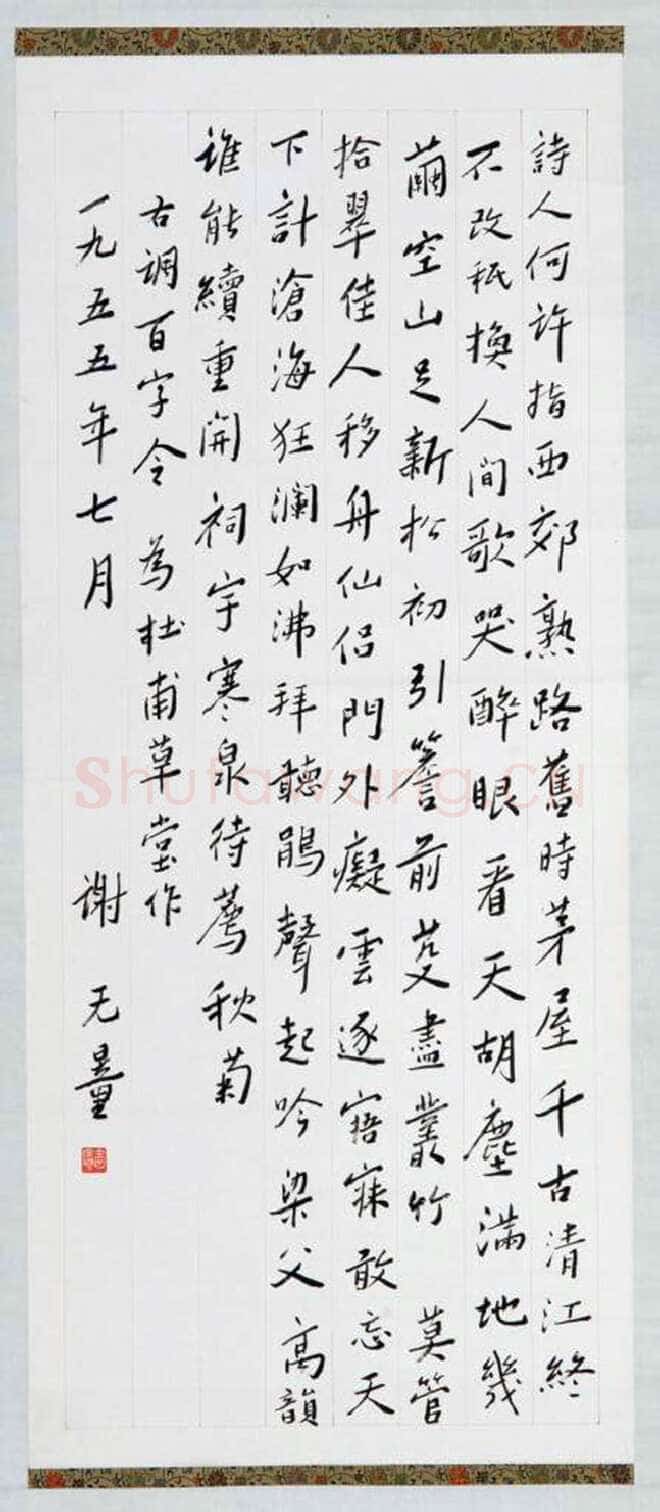 詩人何許指西郊熟路舊時茅屋千古清江終
不改秖換人間歌哭醉眼看天胡塵滿地幾
繭空山足新松初引簷前芟盡叢竹 莫管
拾翠佳人移舟仙侶門外癡雲逐寤寐敢忘天
下計滄海狂瀾如沸拜聽鵑聲起吟梁父高韻
誰能續重開祠宇寒泉待薦秋菊
古调百字令 為杜甫草堂作
一九五五年七月 谢无量
Shufawang.cn